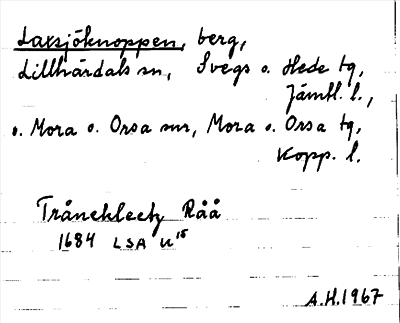 Laxsjöknoppen, berg,
Lillhärdals sn, Svegs o. Hede tg,
Jämtl. l.,
o. Mora o. Orsa snr, Mora o. Orsa tg,
Kopp. l.
Trånekleetz Råå
1684 LSA U15
A.H.1967